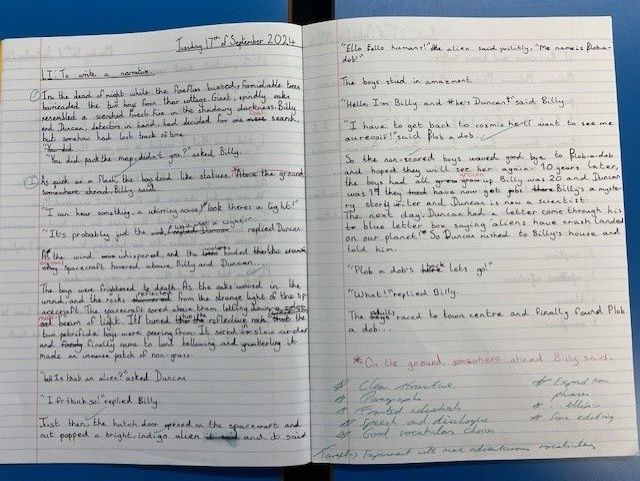 Tuesday 17th of September 2024
LI: To write a narrative.
In the dead of night while the fireflies buzzed, formidable trees
barricaded the two boys from their cottage. Giant, spindly oaks
resembled a scorched forest fire in the shadowy darkness. Billy
and Duncan, detectors in hand, had decided for one more search
but somehow had lost track of time.
"You did
"You did pack the map, didn't you?" asked Billy.
As quick as a flash, the boys stood like statues. Above the ground
somewhere ahead. Billy said
"I can hear something, a whirring sound, look there's a light!"
"It's probably just the wind, replied Duncan.
As the wind whispered, and the
spacecraft hovered above Billy and Duncan.
The boys were frightened to death. As the oaks waved in the
wind and the rocks reflected from the strange light of the sp
acecraft. The spacecraft soared above them letting down
beam of light. It turned the
two petrified boys were peering from. It seized to slow
and finally came to land bellowing and
made an immense patch of non-grass.
"What is that an alien?" asked Duncan
"I think so!" replied Billy.
Just then, the hatch door opened on the spacecraft and
out popped a bright, indigo alien and it said
"Ello Eello humans!" the alien said politly, "Me name is Plob-a-
dob!"
The boys stud in amazment.
"Hello, I'm Billy and he's Duncan!" said Billy
"I have to get back to cosmic he'll want to see me
aurevoir!" said Plob a dob.
So the non-scared boys waved good bye to Plob-a-dob
and hoped they will see her again. 10 years later,
the boys had all grown up Billy was 20 and Duncan
was 19 they have now got jobs Billy's a myste-
ry story writer and Duncan is now a scientist.
The next day, Duncan had a letter come through his
blue letter box saying aliens have crash landed
on our planet! So Duncan rushed to Billy's house and
told him.
"Plob a dob's back lets go!"
"What!" replied Billy.
The adults raced to town centre and finally found Plob
a dob...
*On the ground, somewhere ahead Billy said.
* Clear structure
* Paragraphs
* Fronted adverbials
* Speech and dialogue
* Good vocabulary choices
* Expand noun
phrases
* ... ellipsis
* Some editing
Target: Experiment with more adventurous vocabulary